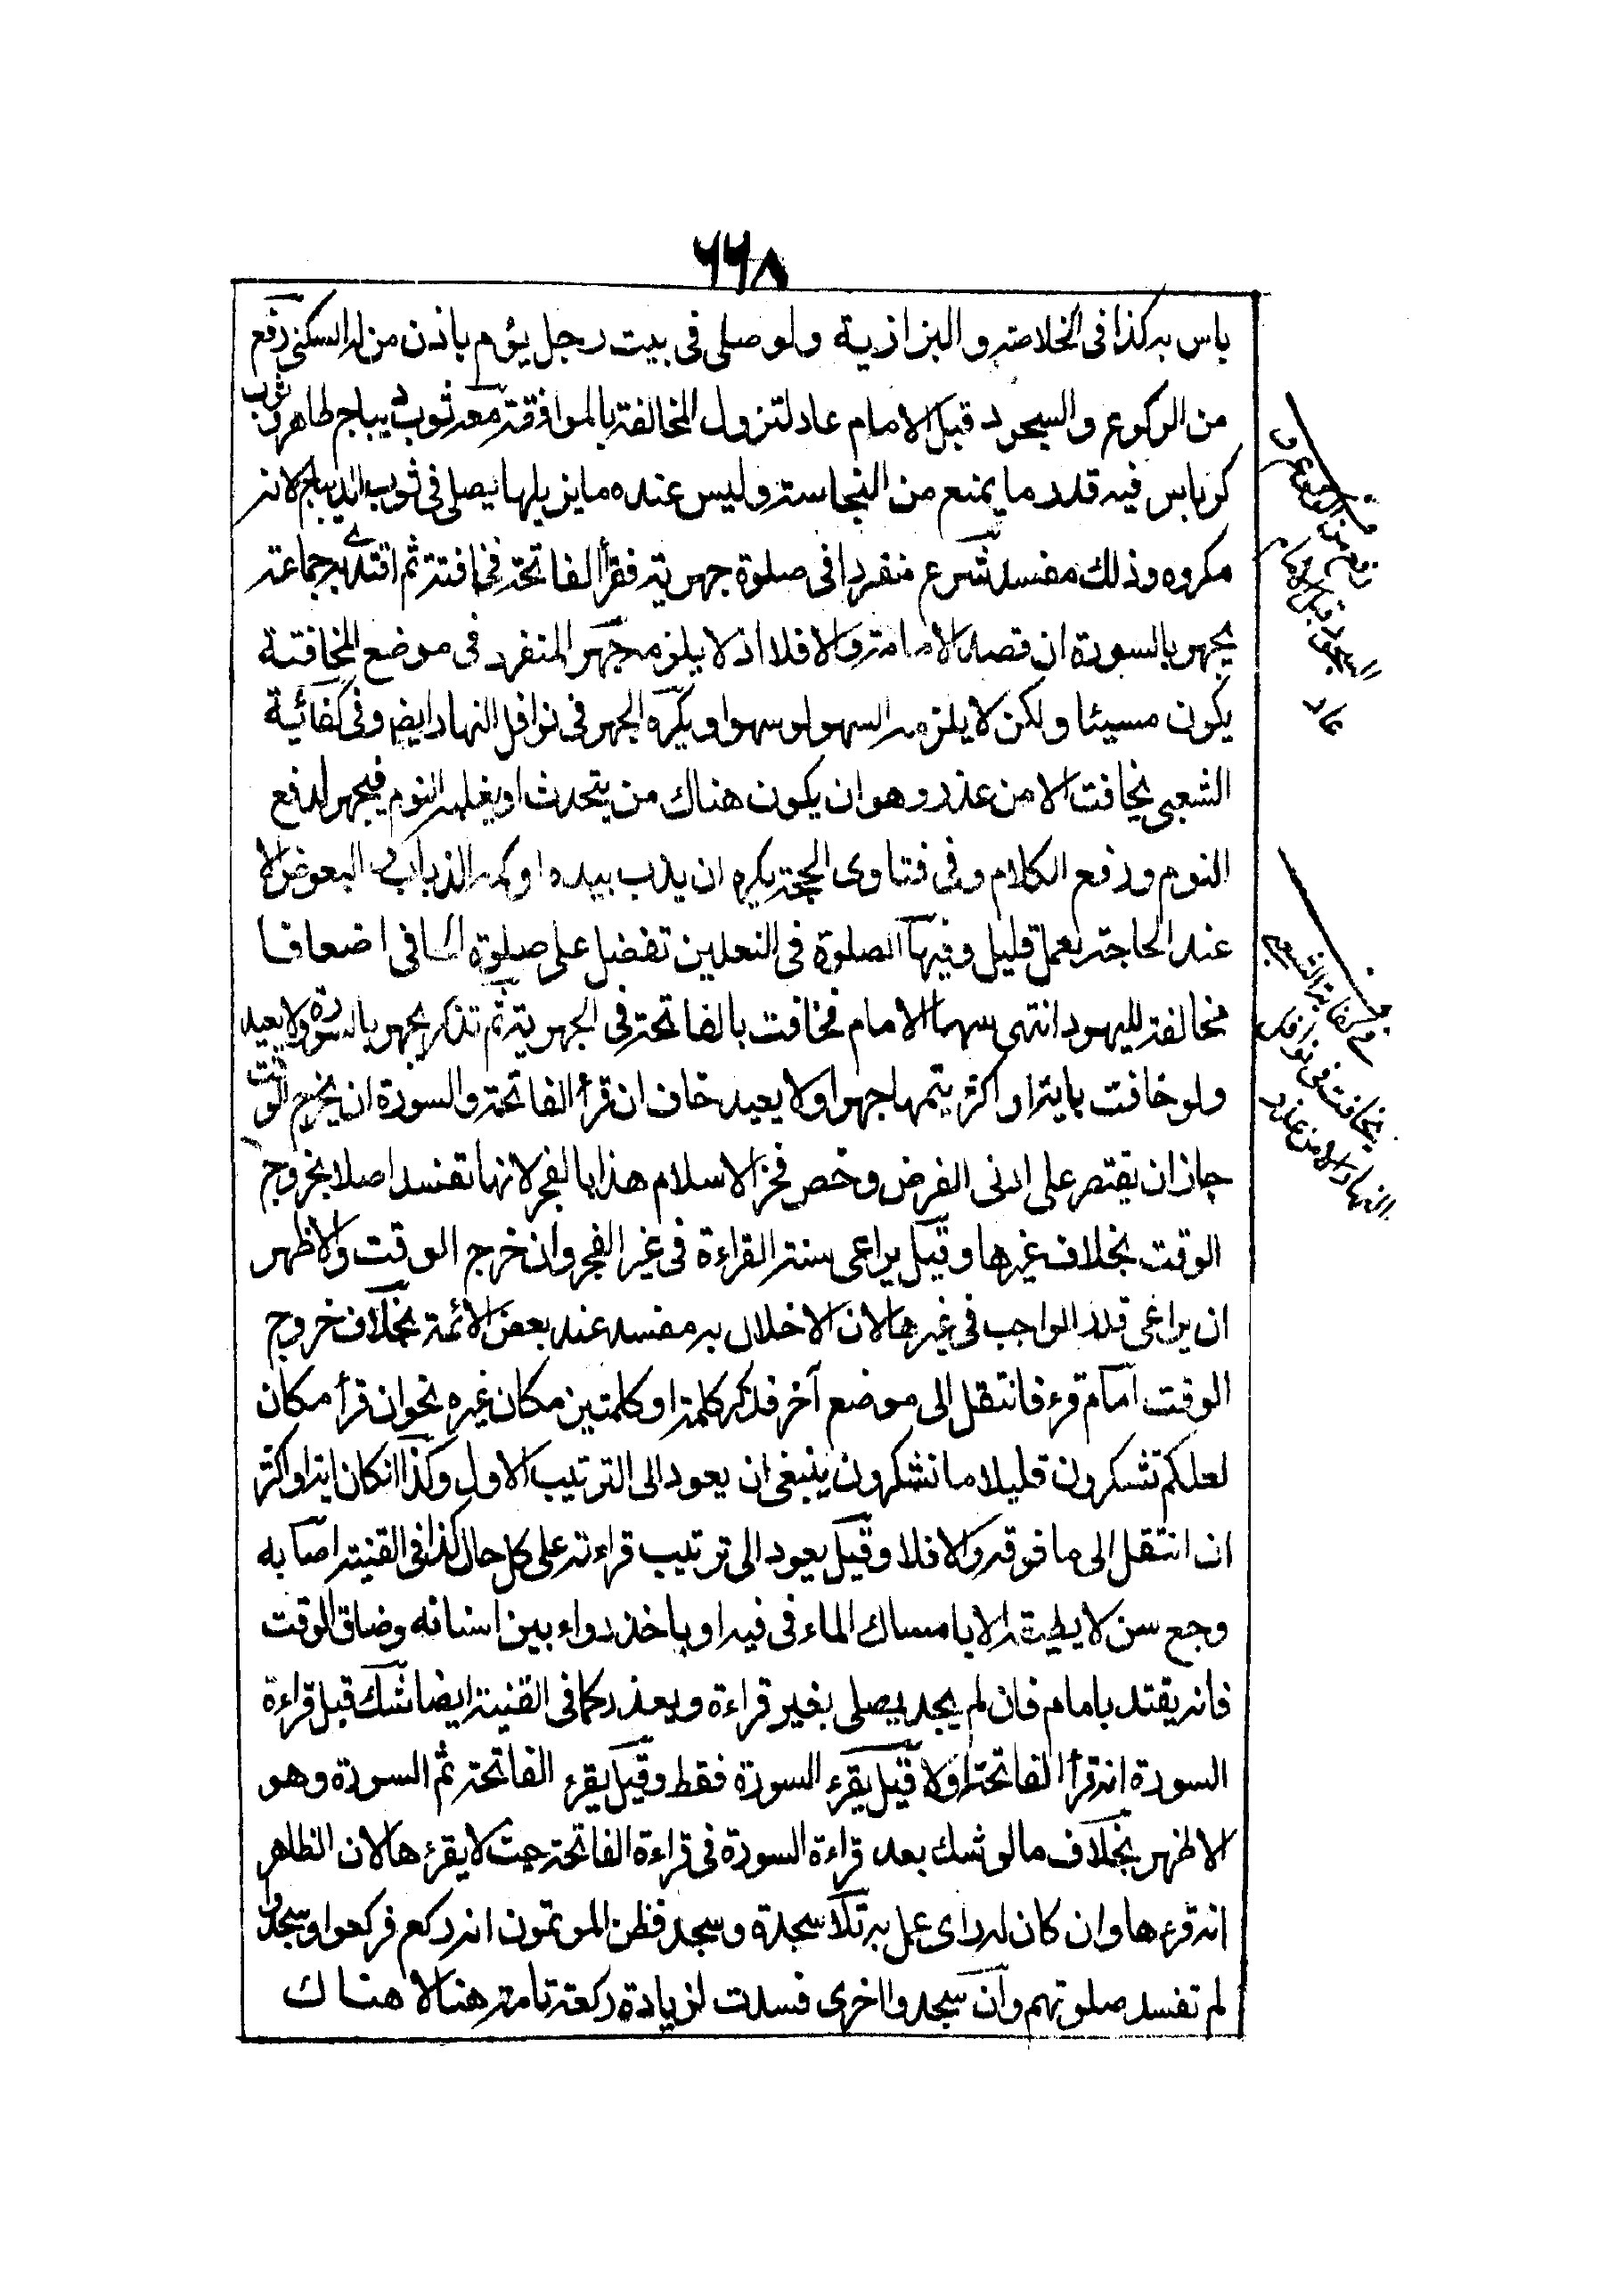 ٦٦٨
باس به كذا فى الخلاصة و البزازية ولو صلى فى بيت رجل يؤم باذن من له السكنى رفع
من الركوع والسجود قبل الامام عاد لتزول المخالفة بالموافقة معه ثوب ديباج طاهر وثوب
كرباس فيه قدر ما يمنع من النجاسة وليس عنده ما يزيلها يصلى فى ثوب الديباج لانه
مكروه وذلك مفسد شرع منفردا فى صلوة جهرية فقرأ الفاتحة فخافتة ثم اقتدى به جماعة
يجهر بالسورة ان قصد الامامة والا فلا اذ لا يلزمه جهر المنفرد فى موضع المخافتة
يكون مسيئا ولكن لا يلزمه السهو لو سهوا ويكره الجهر فى نوافل النهار ايضا وفى كفائية
الشعبى يخافت الا من عذر وهو ان يكون هناك من يتحدث او يغلبه النوم فيجهر لدفع
النوم ودفع الكلام وفى فتاوى الحجة يكره ان يذب بيده او كمه الذباب البعوض الا
عند الحاجة بعمل قليل وفيها الصلوة فى النعلين تفضل على صلوة الحافى اضعافا
مخالفة لليهود انتهى سها الامام فخافت بالفاتحة فى الجهرية ثم تذكر يجهر بالسورة ولا يعيد
ولو خافت باية او اكثر يتمها جهرا ولا يعيد خاف ان قرأ الفاتحة والسورة ان يخرج الوقت
جاز ان يقتصر على ادنى الفرض وخص فخر الاسلام هذا بالفجر لانها تفسد اصلا بخروج
الوقت بخلاف غيرها وقيل يراعى سنة القراءة فى غير الفجر وان خرج الوقت والاظهر
ان يراعى قدر الواجب فى غيرها لان الاخلال به مفسد عند بعض الائمة بخلاف خروج
الوقت امام قرء فانتقل الى موضع آخر فذكر كلمة او كلمتين مكان غيره نحو ان قرأ مكان
لعلكم تشكرون قليلا ما تشكرون ينبغى ان يعود الى الترتيب الاول وكذا انكان اية او اكثر
ان انتقل الى ما فوقه والا فلا وقيل يعود الى ترتيب قراءته على كل حال كذا فى القنية اصابه
وجع سن لا يطيقه الا بامساك الماء فى فيه او ياخذ دواء بين اسنانه وضاق الوقت
فانه يقتد بامام فان لم يجد يصلى بغير قراءة ويعذر كما فى القنية ايضا شك قبل قراءة
السورة انه قرأ الفاتحة اولا قيل يقرء السورة فقط وقيل يقرء الفاتحة ثم السورة وهو
الاظهر بخلاف ما لو شك بعد قراءة السورة فى قراءة الفاتحة حيث لا يقرء ها لان الظاهر
انه قرءها وان كان له راى عمل به تلا سجدة وسجد فظن الموتمون انه ركع فركعوا وسجدوا
لم تفسد صلوتهم وان سجدوا اخرى فسدت لزيادة ركعة تامة هنا لا هناك
رفع من الركوع و
السجود قبل الامام
عاد
وفى كفاية الشعبى
يخافت فى نوافل
النهار الا من عذر